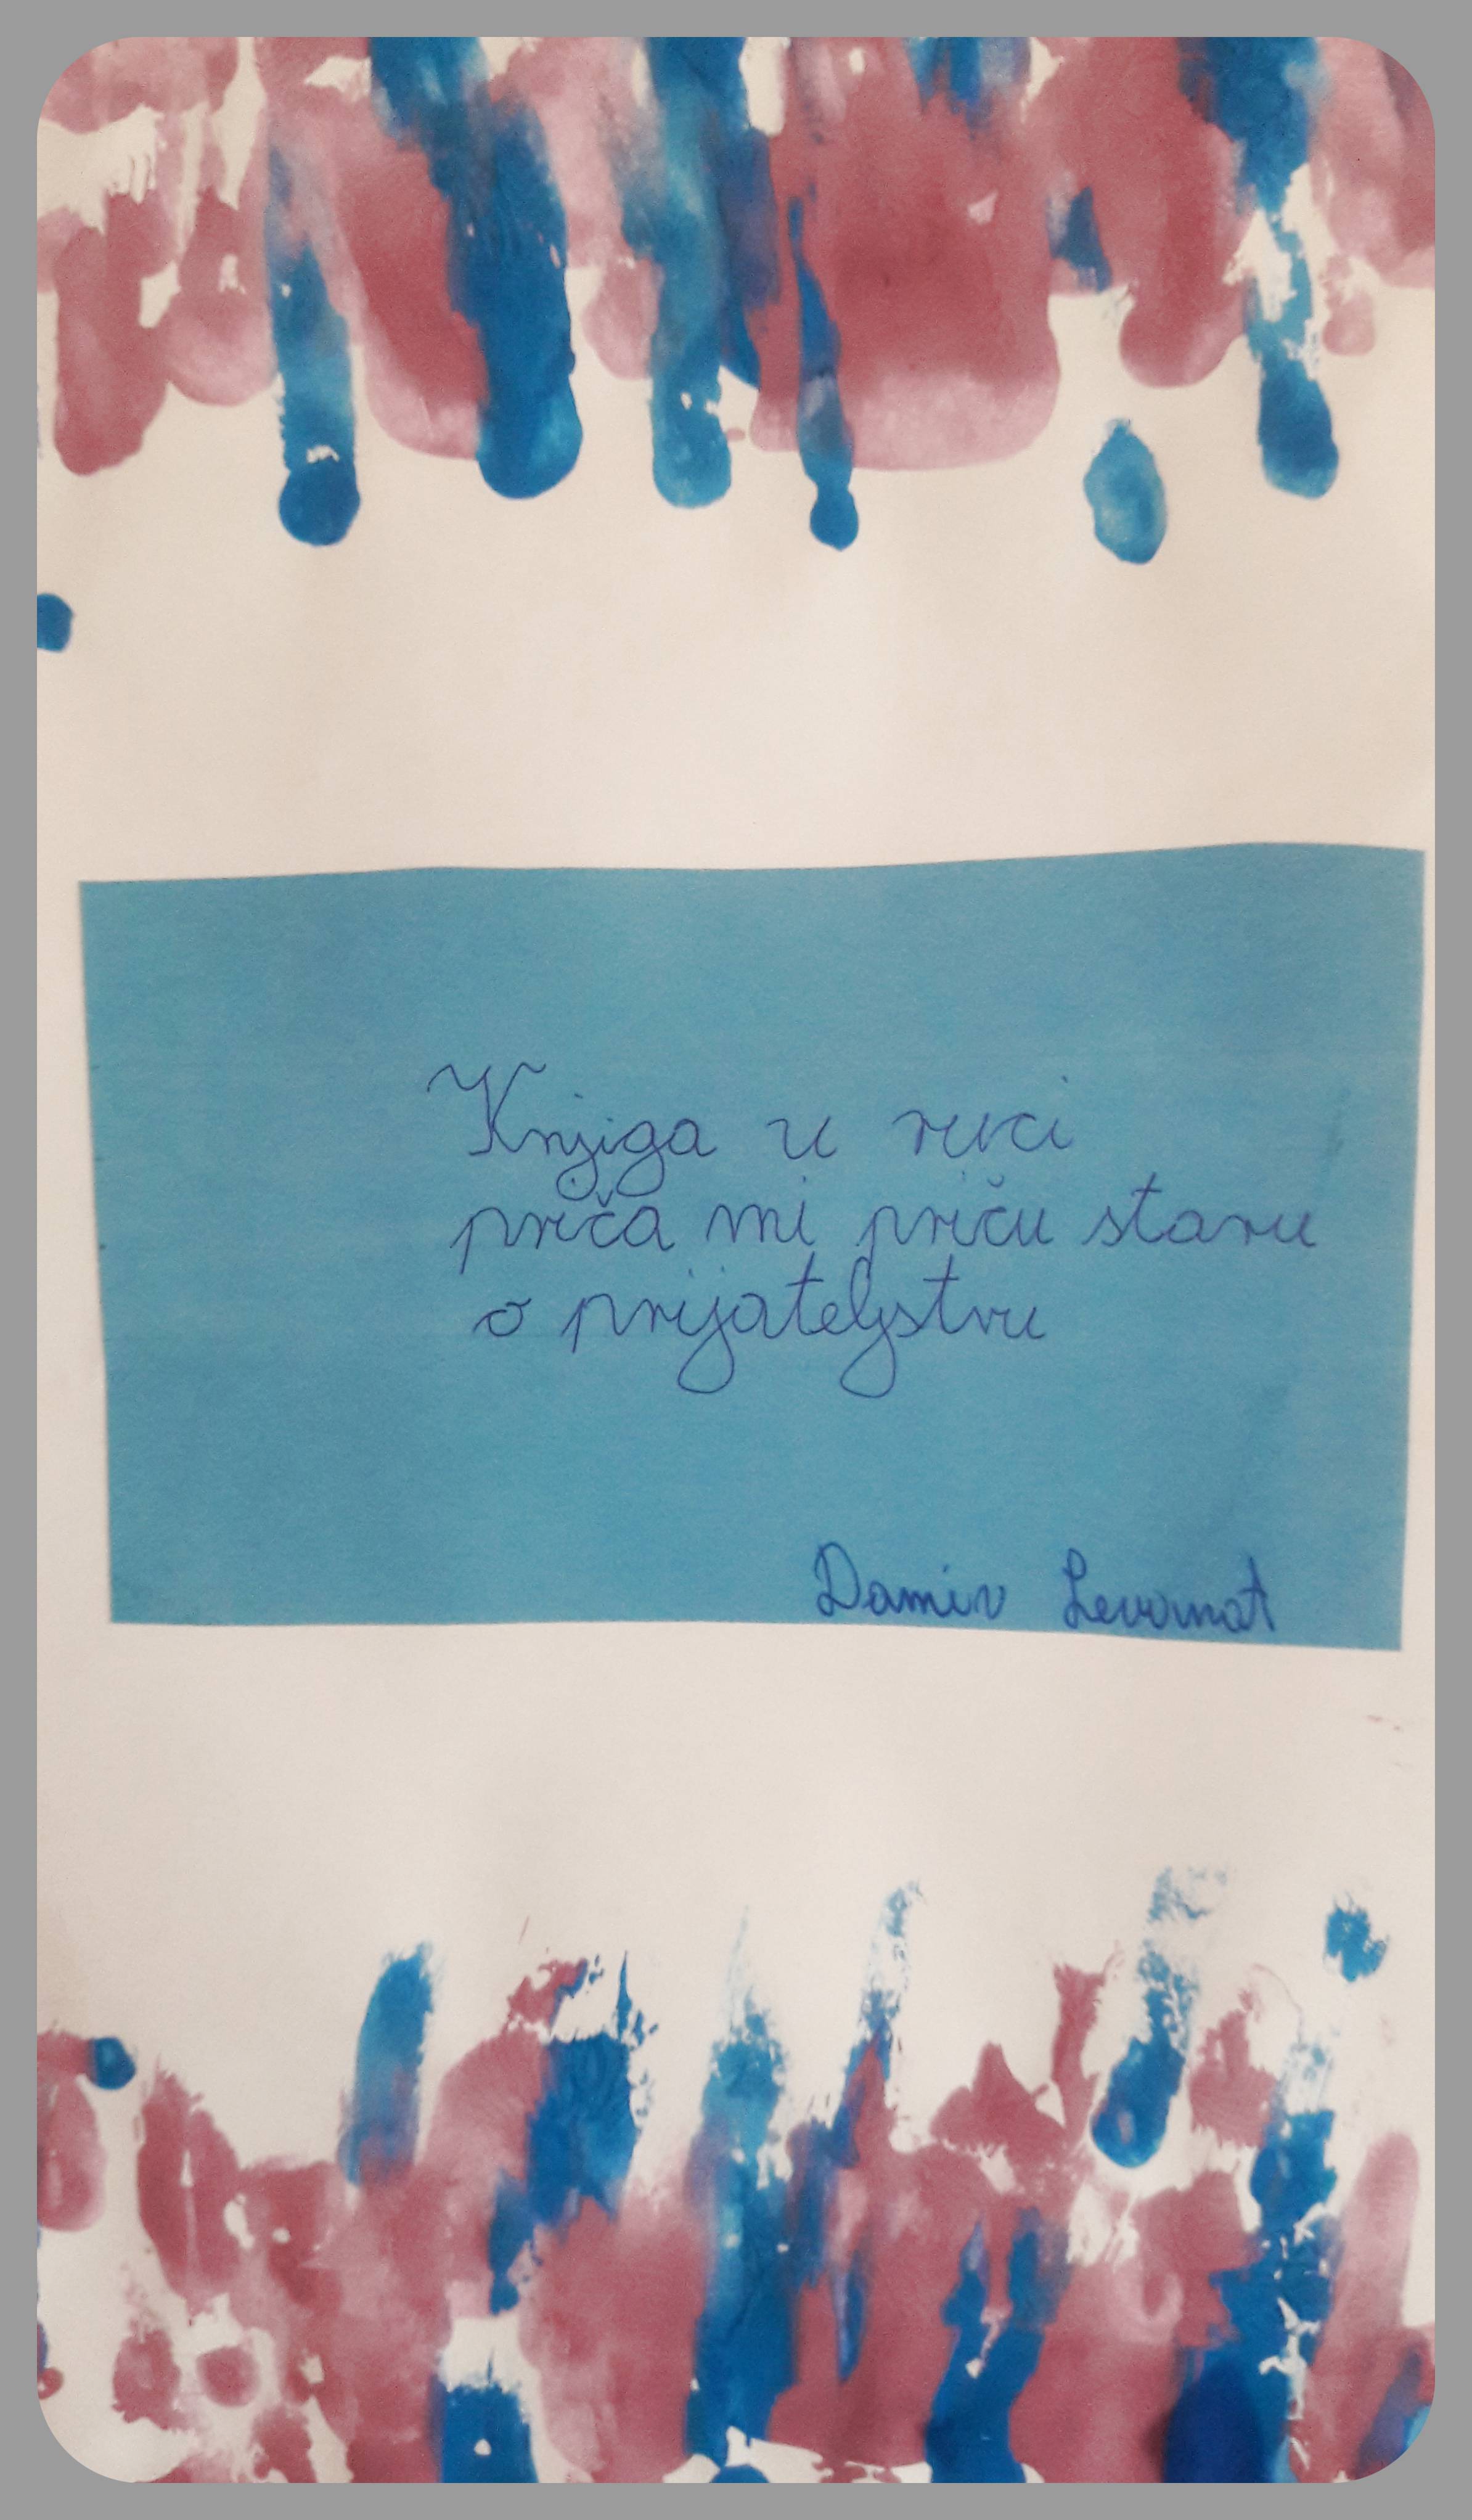 Knjiga u ruci
priča mi priču staru
o prijateljstvu
Damir